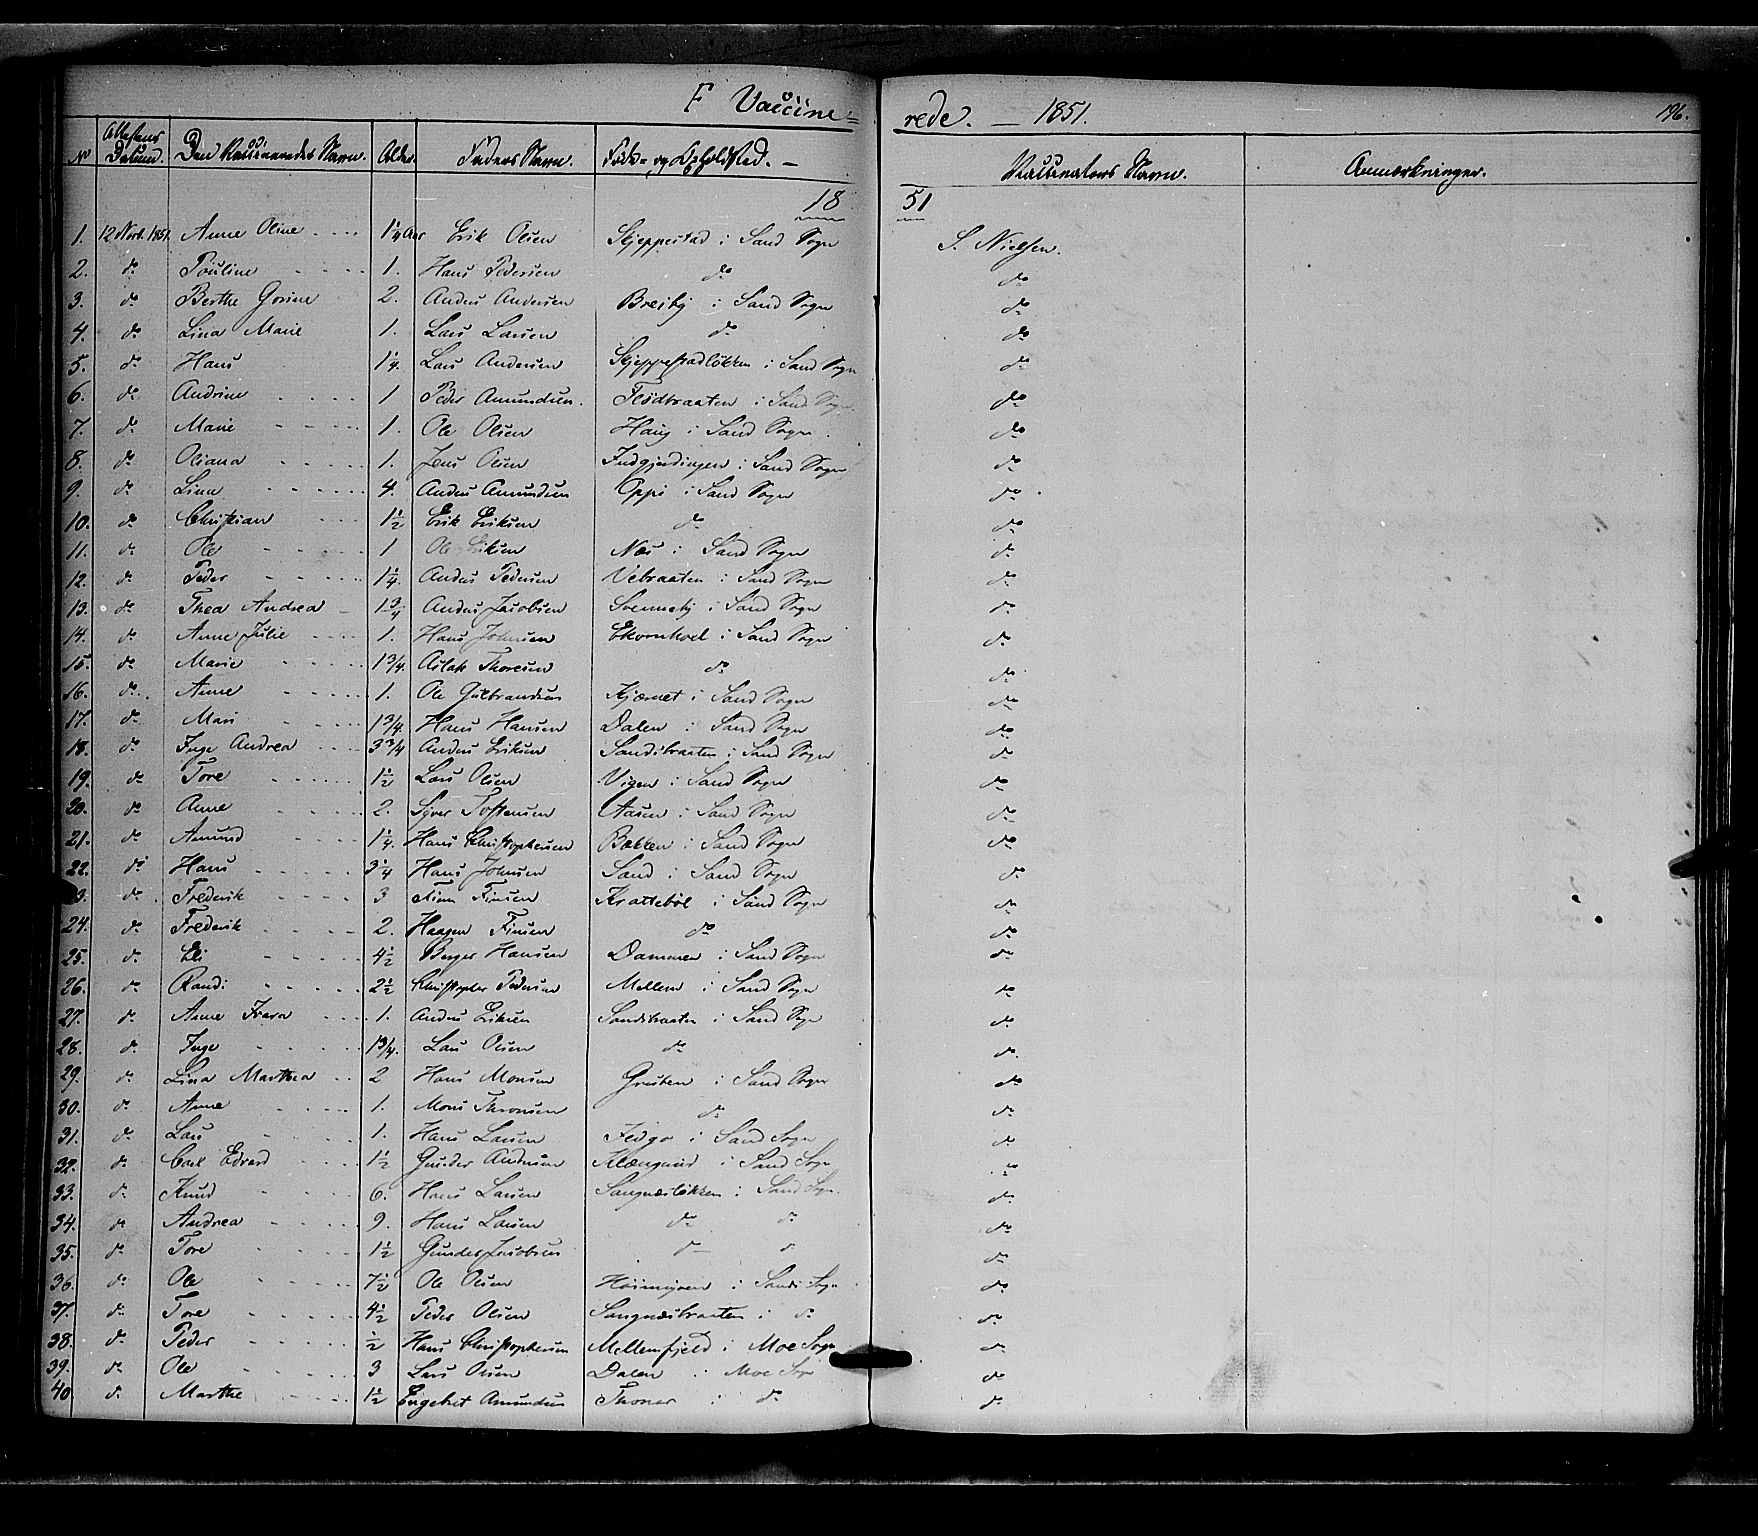 F Vaccine= rede. — 1851. 196.
No Attestens Datum. Den Vaccineredes Navn. Alder. Faders Navn. Føde- og Opholdsted. — Vaccinators Navn. Anmærkninger.
18 51
1. 12 Novb. 1851. Anne Oline 1¼ Aar Erik Olsen Skjeppestad i Sand Sogn S. Nielsen.
2. do Pouline 1. Hans Pedersen do do
3. do Berthe Gorine 2. Anders Andersen Breiby i Sand Sogn do
4. do Lina Marie 1. Lars Larsen do do
5. do Hans 1¼. Lars Andersen Skjeppestadløkken i Sand Sogn do
6. do Andrine 1 Peder Amundsen. Flødbraaten i Sand Sogn. do
7. do Marie 1. Ole Olsen Haug i Sand Sogn. do
8. do Oliana 1. Jens Olsen Indgjerdingen i Sand Sogn do
9. do Lina 4. Anders Amundsen Oppi i Sand Sogn do
10. do Christian 1½ Erik Eriksen do do
11. do Ole 1 Ole Eriksen Næs i Sand Sogn do
12. do Peder 1¼. Anders Pedersen Vebraaten i Sand Sogn do
13. do Thea Andrea 1¾ Anders Jacobsen Svenneby i Sand Sogn do
14. do Anne Julie 1. Hans Johnsen Ekornhoel i Sand Sogn do
15. do Marie 1¾. Aslak Thoresen do do
16. do Anne 1. Ole Gulbrandsen Kjærnet i Sand Sogn do
17. do Mari 1¾. Hans Hansen Dalen i Sand Sogn do
18. do Inge Andrea 3¾ Anders Eriksen Sandsbraaten i Sand Sogn do
19. do Tore 1½ Lars Olsen Vigen i Sand Sogn do
20. do Anne 2. Syver Tostensen Aasen i Sand Sogn do
21. do Amund 1¼. Hans Christophersen Bækken i Sand Sogn do
22. do Hans 3¼ Hans Johnsen Sand i Sand Sogn do
3. do Frederik 3 Finn Finsen Krattebøl i Sand Sogn do
24. do Frederik 2. Haagen Finsen do do
25. do Eli 4½ Berger Hansen Dammen i Sand Sogn do
26. do Randi 2½ Christopher Pedersen Mellem i Sand Sogn do
27. do Anne 1. Anders Eriksen Sandsbraaten i Sand Sogn do
28. do Inge 1¾. Lars Olsen do do.
29. do Lina Marthea 2 Hans Monsen Gruben i Sand Sogn do
30. do Anne 1. Mons Thronsen do do
31. do Lars 1. Hans Larsen i Sand Sogn do
32. do Carl Edvard 1½ Gunder Andersen i Sand Sogn do
33. do Knud 6. Hans Larsen Sangnæsløkken i Sand Sogn. do
34. do Andrea 9. Hans Larsen do do do
35. do Tore 1½ Gunder Jacobsen do do do
36. do Ole 7½ Ole Olsen i Sand Sogn do
37. do Tore 4½ Peder Olsen Sangnæsbraaten i do do
38. do Peder ½ Hans Christophersen Mellemfjeld i Moe Sogn do
39. do Ole 3 Lars Olsen Dalen i Moe Sogn do
40 do Marthe 1½ Engebret Amundsen Thoner i do do